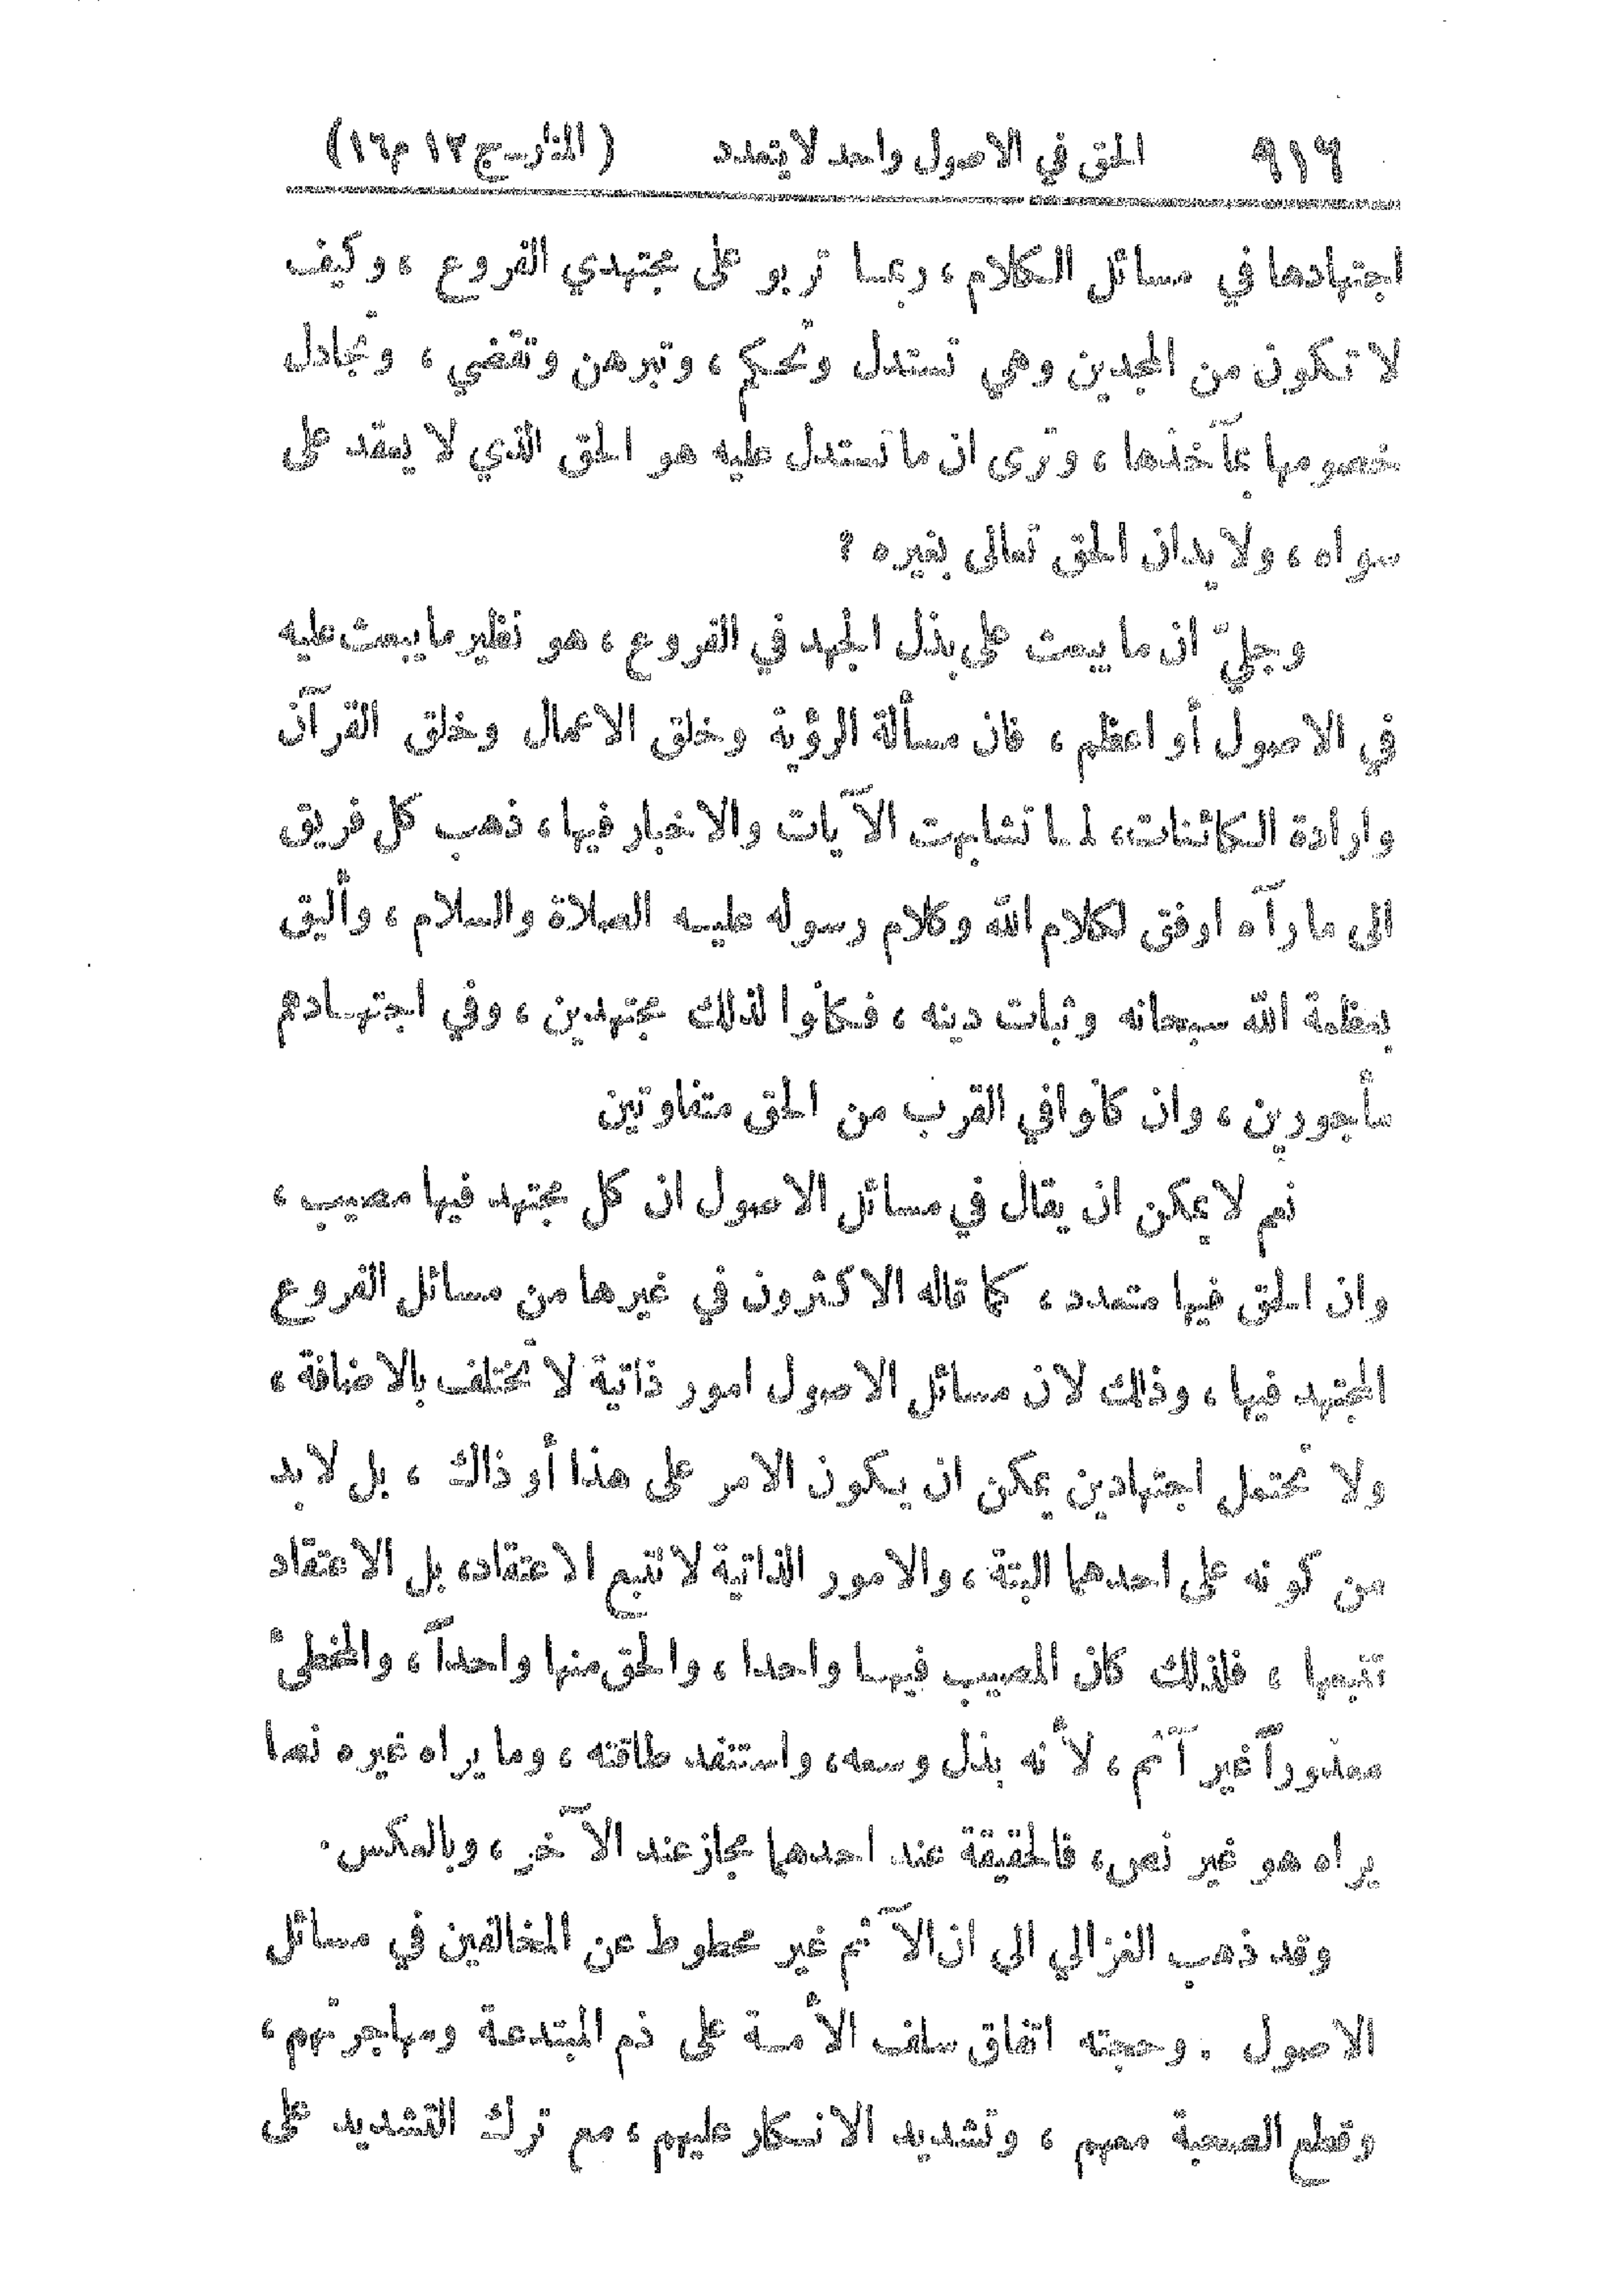 ٩١٦ الحق في الاصول واحد لا يتعدد (المنار-ج ١٢ م ١٦)
اجتهادها في مسائل الكلام، ربما تربو على مجتهدي الفروع، وكيف
لا تكون من المجدين وهي تستدل وتحكم، وتبرهن وتقضي، وتجادل
خصومها بمآخذها، وترى ان ما تستدل عليه هو الحق الذي لا يعقد على
سواه، ولا يدان الحق تعالى بغيره؟
وجليّ ان ما يبعث على بذل الجهد في الفروع، هو نظير ما يبعث عليه
في الاصول أو اعظم، فان مسألة الرؤية وخلق الاعمال وخلق القرآن
وارادة الكائنات، لما تشابهت الآيات والاخبار فيها، ذهب كل فريق
الى ما رآه ارفق لكلام الله وكلام رسوله عليه الصلاة والسلام، وأليق
بعظمة الله سبحانه وثبات دينه، فكانوا لذلك مجتهدين، وفي اجتهادهم
مأجورين، وان كانوا في القرب من الحق متفاوتين
نعم لا يمكن ان يقال في مسائل الاصول ان كل مجتهد فيها مصيب،
وان الحق فيها متعدد، كما قاله الاكثرون في غيرها من مسائل الفروع
المجتهد فيها، وذلك لان مسائل الاصول امور ذاتية لا تختلف بالاضافة،
ولا تحتمل اجتهادين يمكن ان يكون الامر على هذا أو ذاك، بل لا بد
من كونه على احدهما البتة، والامور الذاتية لا تتبع الاعتقاد، بل الاعتقاد
تتبعها، فلذلك كان المصيب فيها واحدا، والحق منها واحداً، والمخطئ
معذوراً غير آثم، لأنه بذل وسعه، واستنفد طاقته، وما يراه غيره نصا
يراه هو غير نص، فالحقيقة عند احدهما مجاز عند الآخر، وبالعكس.
وقد ذهب الغزالي الى ان الآثم غير محطوط عن المخالفين في مسائل
الاصول. وحجته اتفاق سلف الأمة على ذم المبتدعة ومهاجرتهم،
وقطع الصحبة معهم، وتشديد الانكار عليهم، مع ترك التشديد على